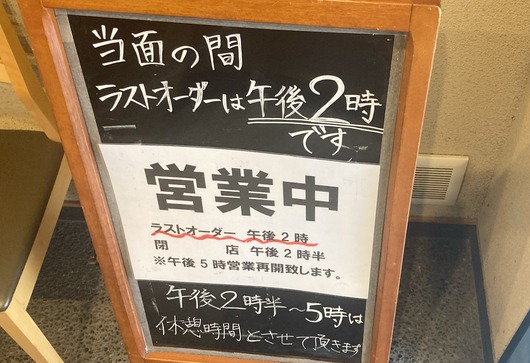 当面の間
ラストオーダーは午後2時
です
営業中
ラストオーダー 午後2時
閉 店 午後2時半
※午後5時営業再開致します。
午後2時半~5時は
休憩時間とさせて頂きます